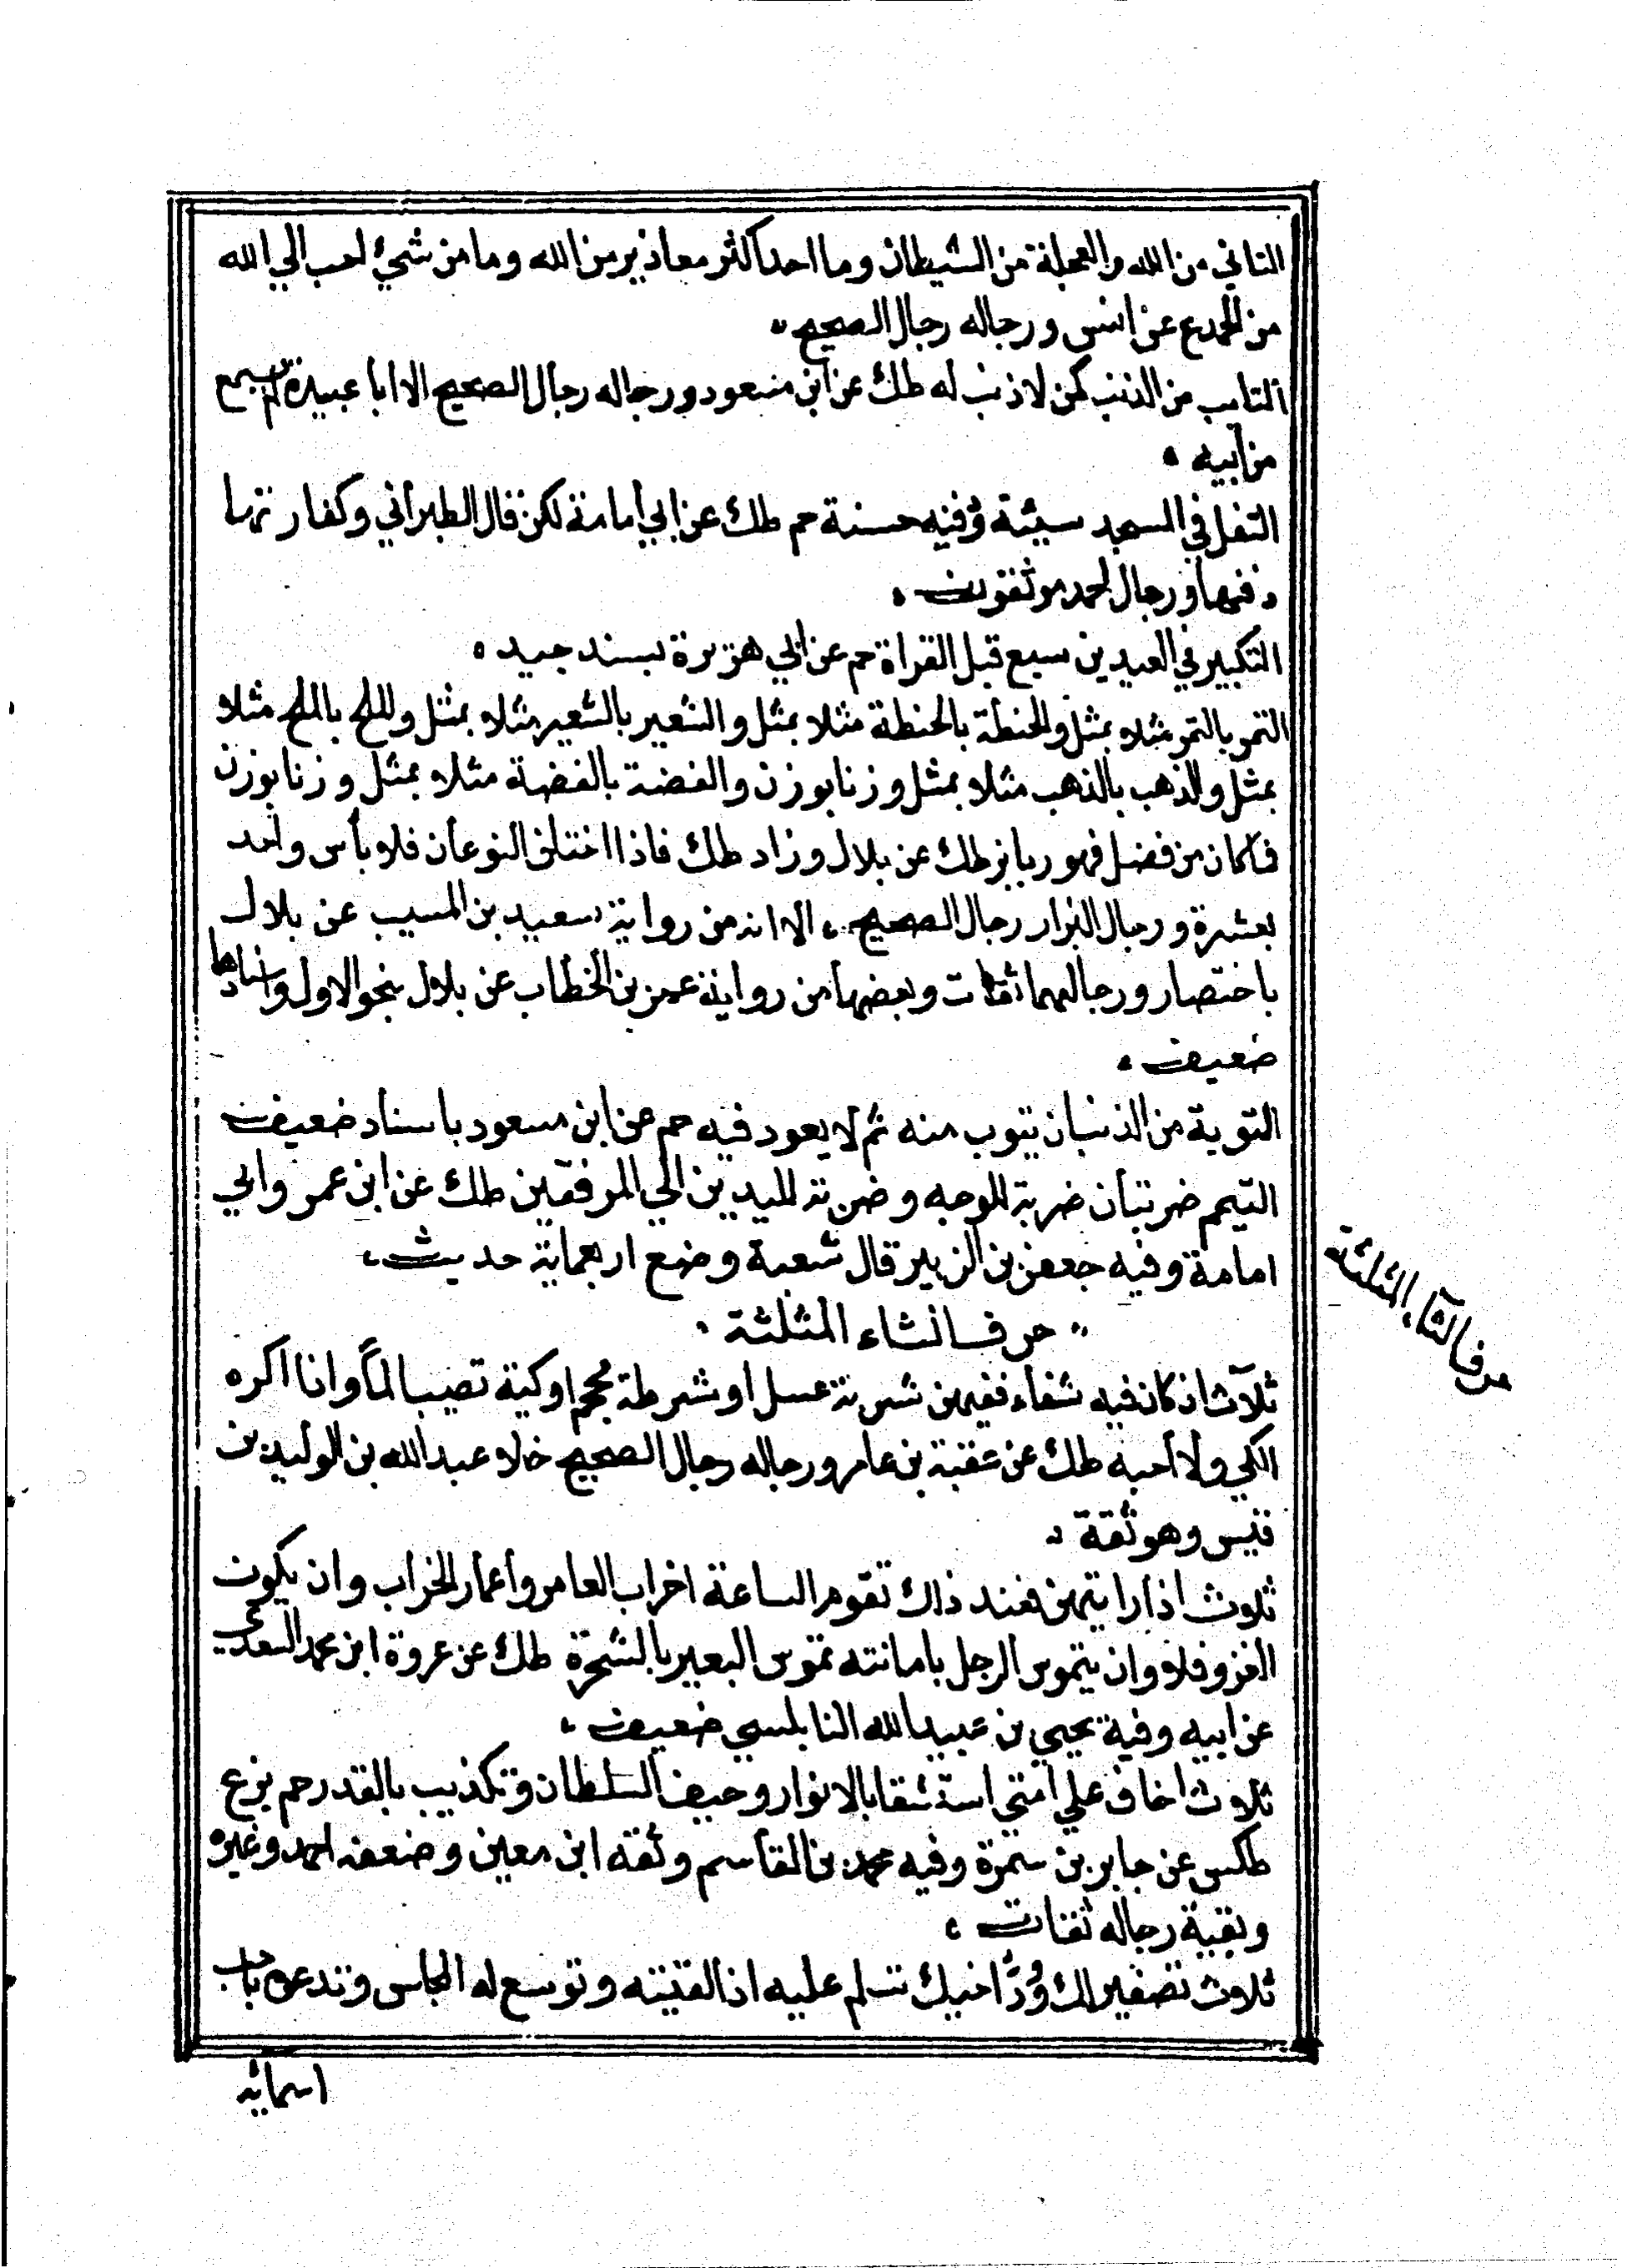 التاني من الله والعجلة من الشيطان وما احد اكثر معاذير من الله وما من شيئ احب الي الله
من الحمد ع عن انس ورجاله رجال الصحيح
التايب من الذنب كمن لا ذنب له طك عن ابن مسعود ورجاله رجال الصحيح الا ابا عبيدة لم يسمع
من ابيه
التفل في المسجد سيئة وفيه حسنة حم طك عن ابي امامة لكن قال الطبراني وكفارتها
دفنها ورجال احمد موثقون
التكبير في العيدين سبع قبل القراة حم عن ابي هريرة بسند جيد
التمر بالتمر مثلا بمثل والحنطة بالحنطة مثلا بمثل والشعير بالشعير مثلا بمثل والملح بالملح مثلا
بمثل والذهب بالذهب مثلا بمثل وزنا بوزن والفضة بالفضة مثلا بمثل وزنا بوزن
فما كان من فضل فهو ربا بز طك عن بلال وزاد طك فاذا اختلف النوعان فلا بأس واحد
بعشرة ورجال البزار رجال الصحيح الا انه من رواية سعيد بن المسيب عن بلال
باختصار ورجالهما ثقات وبعضها من رواية عمر بن الخطاب عن بلال بنحو الاول واسنادها
ضعيف
التوبة من الذنب ان تتوب منه ثم لا يعود فيه حم عن ابن مسعود باسناد ضعيف
التيمم ضربتان ضربة للوجه وضربة لليدين الي المرفقين طك عن ابن عمر وابي
امامة وفيه جعفر بن الزبير قال شعبة وضع اربعماية حديث
حرف الثاء المثلثة
حرف الثآء المثلثة
ثلاث ان كان فيه شفاء ففيهن شربة عسل او شرطة محجم او كية تصيب الما وانا اكره
الكي ولا احبه طك عن عقبة بن عامر ورجاله رجال الصحيح خلا عبد الله بن الوليد بن
قيس وهو ثقة
ثلاث اذا رايتهن فعند ذلك تقوم الساعة اخراب العامر واعمار الخراب وان يكون
الغزو فلا وان يتمرس الرجل بامانته تمرس البعير بالشجرة طك عن عروة ابن محمد السعدي
عن ابيه وفية يحيي بن عبيد الله النابلسي ضعيف
ثلاث اخاف علي امتي استسقا بالانوار وحيف السلطان وتكذيب بالقدر حم بز ع
طكس عن جابر بن سمرة وفيه محمد بن القاسم وثقه ابن معين وضعفه احمد وغيره
وبقية رجاله ثقات
ثلاث تصفين لك ود اخيك تسلم عليه اذا لقيته وتوسع له المجلس وتدعوه باحب
اسمائه